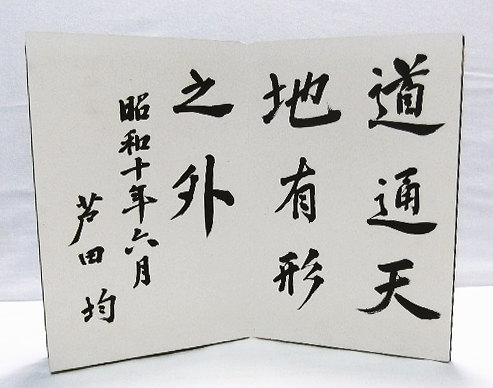 道通天
地有形
之外
昭和十年六月
芦田均